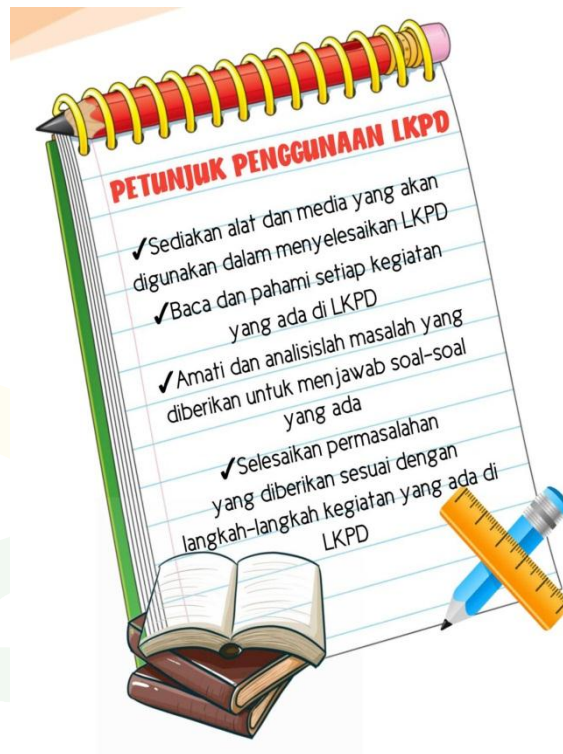 PETUNJUK PENGGUNAAN LKPD
✓Sediakan alat dan media yang akan
digunakan dalam menyelesaikan LKPD
✓Baca dan pahami setiap kegiatan
yang ada di LKPD
✓Amati dan analisislah masalah yang
diberikan untuk menjawab soal-soal
yang ada
✓Selesaikan permasalahan
yang diberikan sesuai dengan
langkah-langkah kegiatan yang ada di
LKPD